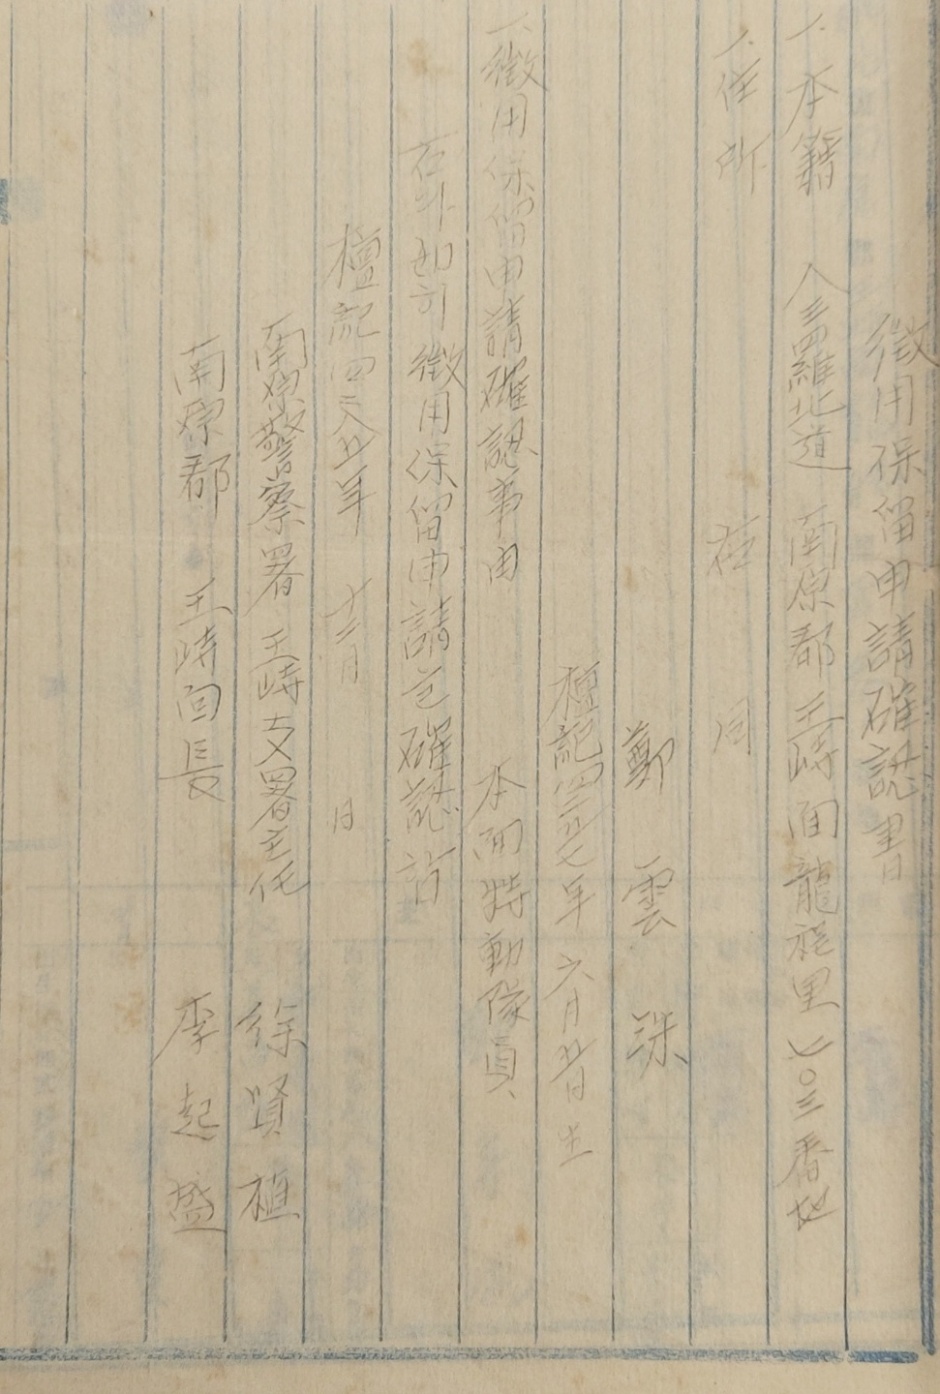 徵用保留申請確認書
一、本籍 全羅北道 南原郡 王峙面 龍程里 七〇三番地
一、住所 右 同
鄭 雲 洙
檀記四二五七年 六月 廿日生
一、徵用保留申請確認事由 本面特動隊員
右와如히 徵用保留申請을 確認함
檀記四二八五年 十二月 日
南原警察署 王峙支署主任 徐賢植
南原郡 王峙面長 李起盛